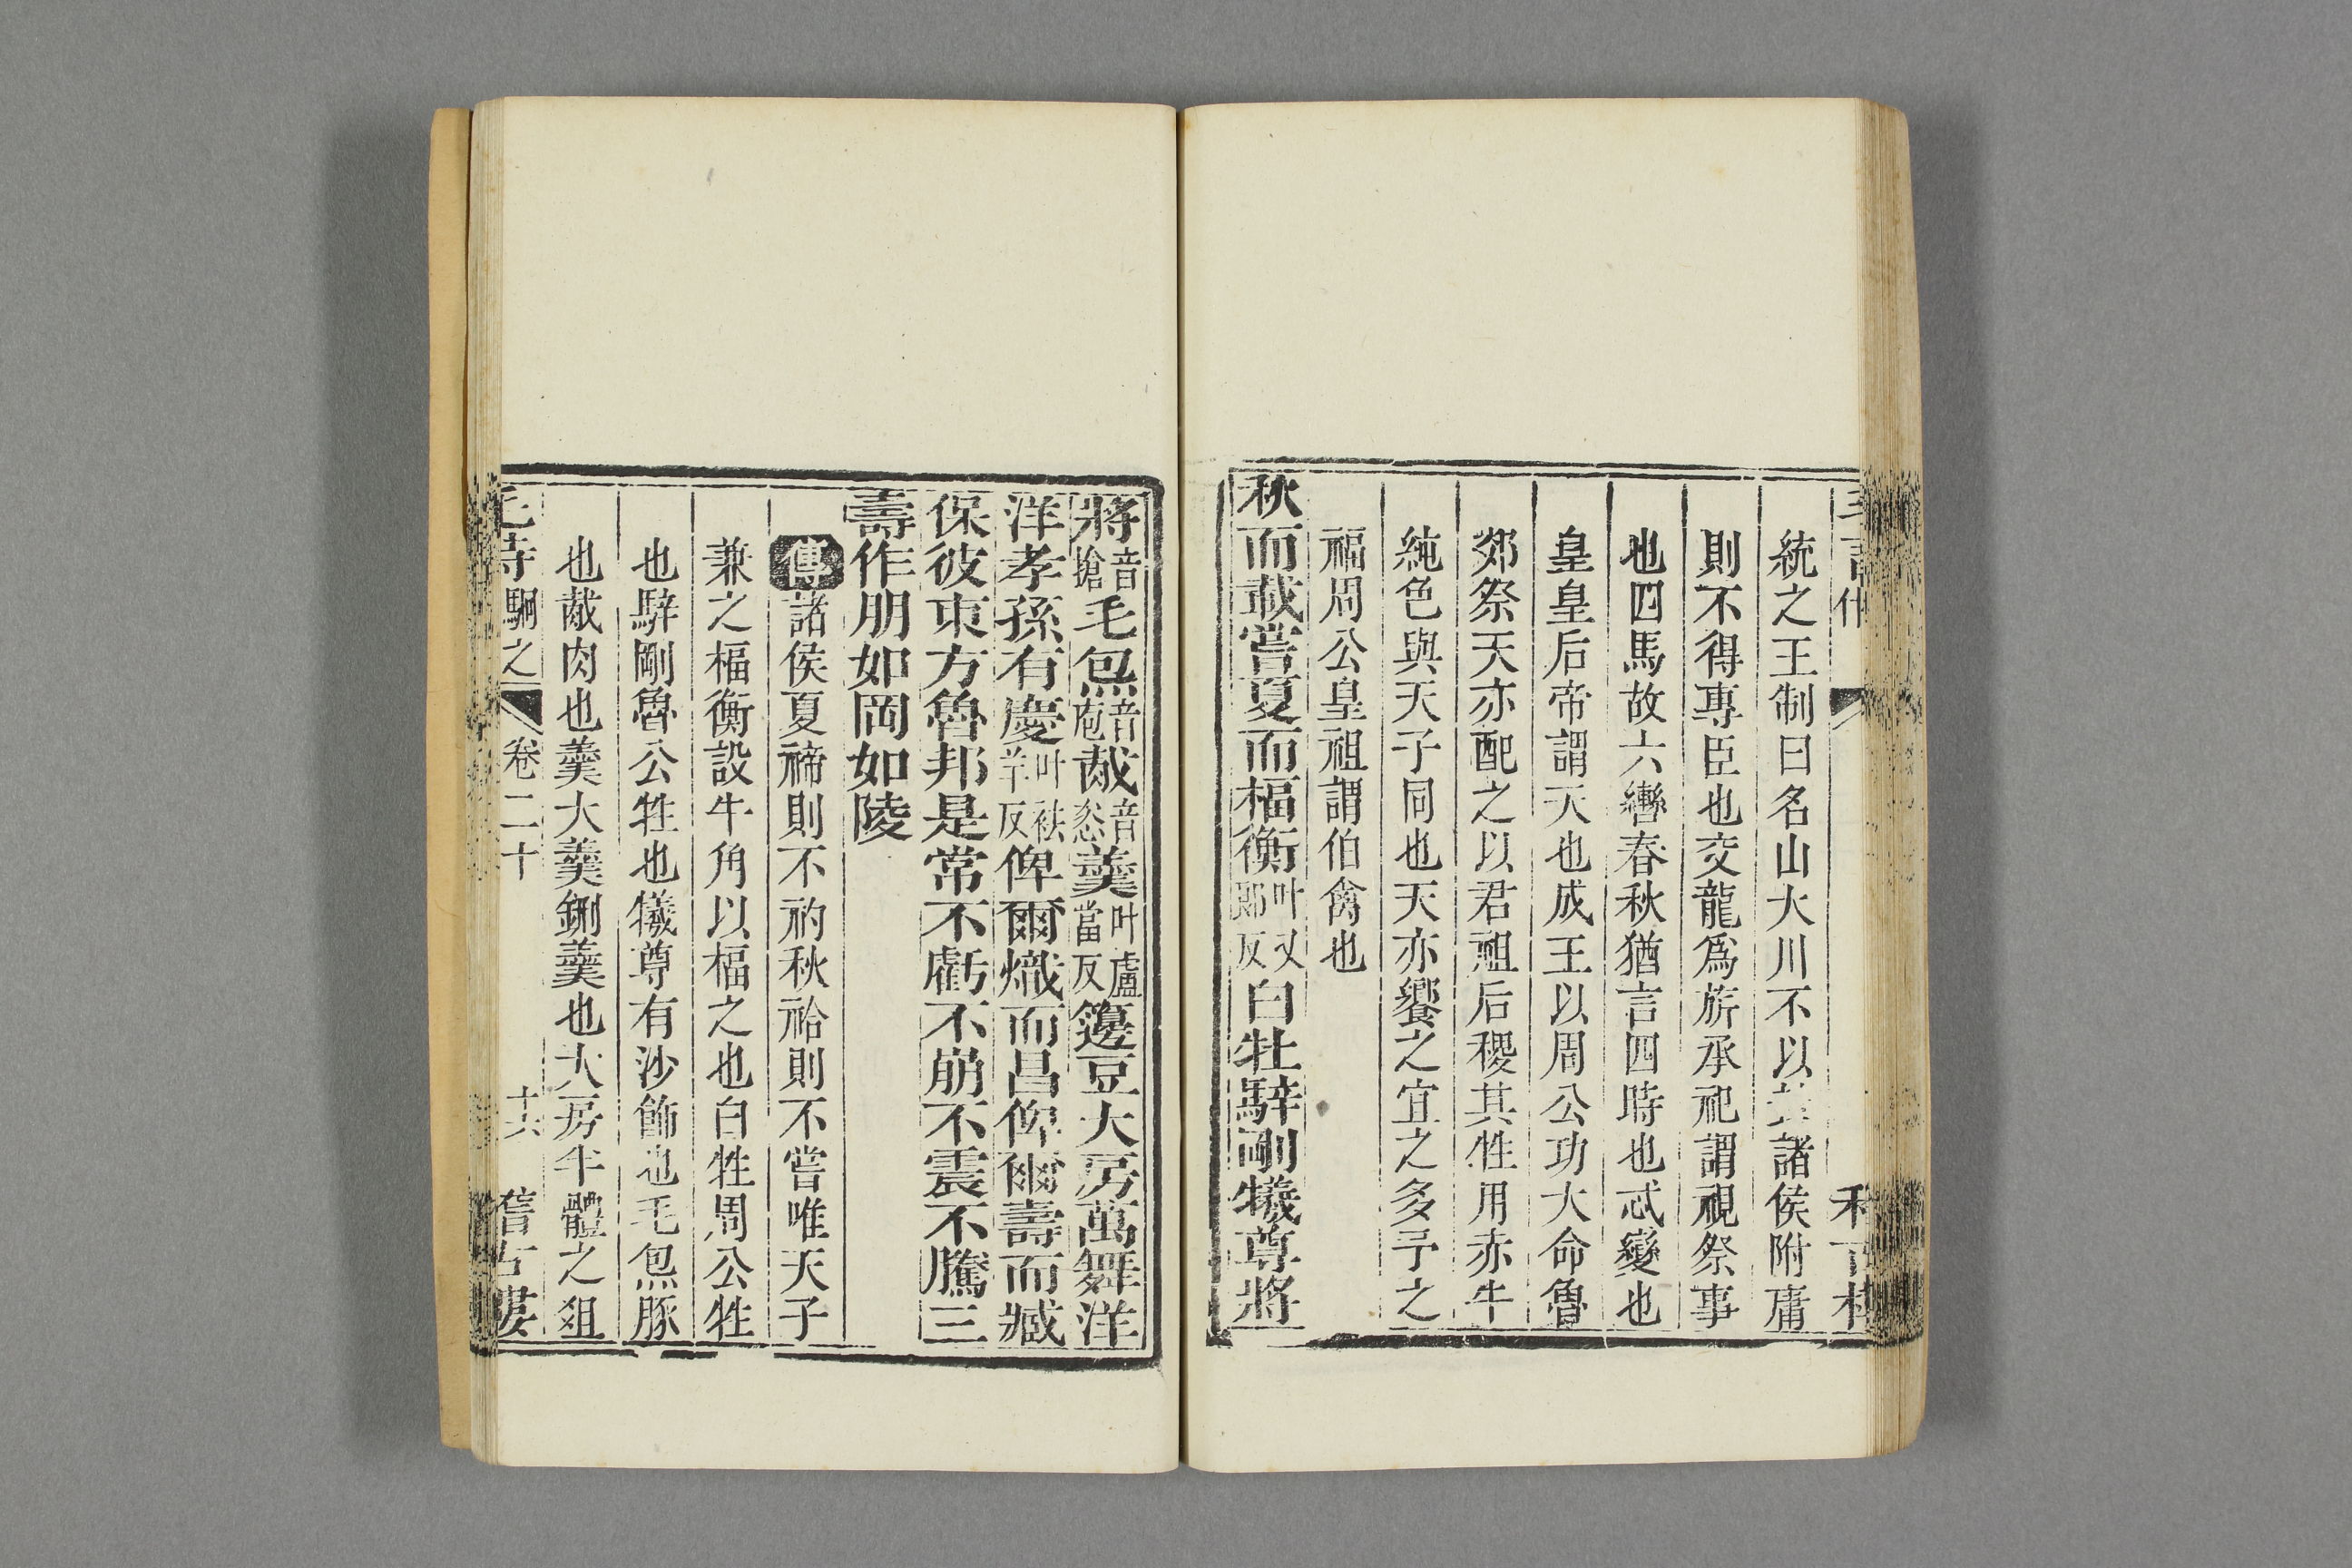 統之王制曰名山大川不以其諸侯附庸
則不得專臣也交龍爲旂承祀謂視祭事
也四馬故六轡春秋猶言四時也忒變也
皇皇后帝謂天也成王以周公功大命魯
郊祭天亦配之以君祖后稷其牲用赤牛
純色與天子同也天亦饗之宜之多予之
福周公皇祖謂伯禽也
秋而載嘗夏而楅衡叶戶郞反白牡騂剛犧尊將
將音搶毛炰音庖胾音恣羹叶盧當反籩豆大房萬舞洋
洋孝孫有慶叶袪羊反俾爾熾而昌俾爾壽而臧
保彼東方魯邦是常不虧不崩不震不騰三
壽作朋如岡如陵
傳諸侯夏禘則不礿秋祫則不嘗唯天子
兼之楅衡設牛角以楅之也白牲周公牲
也騂剛魯公牲也犧尊有沙飾也毛炰豚
也胾肉也羹大羹鉶羹也大房半體之俎
毛詩 駉之 卷二十 十六 稽古樓